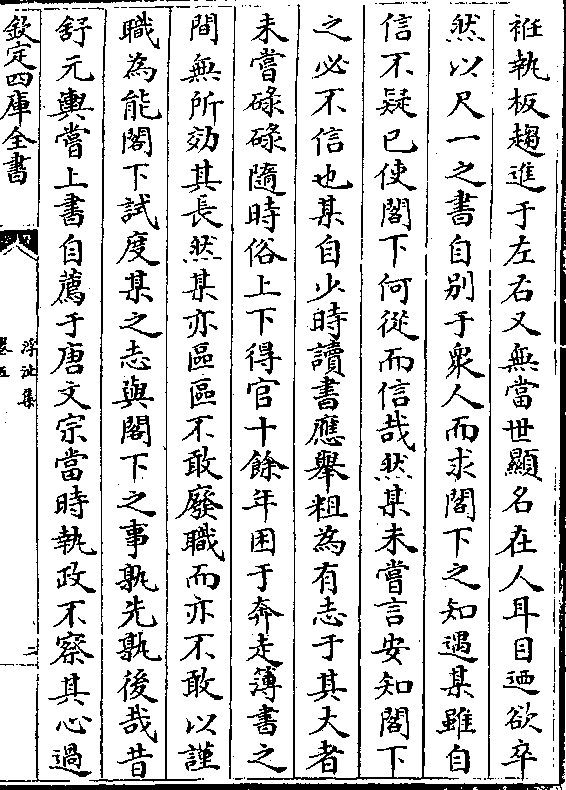 袵執板趨進于左右又無當世顯名在人耳目廼欲卒
然以尺一之書自别于衆人而求閣下之知遇某雖自
信不疑已使閣下何從而信哉然某未嘗言安知閣下
之必不信也某自少時讀書應舉粗為有志于其大者
未嘗碌碌隨時俗上下得官十餘年困于奔走簿書之
間無所効其長然某亦區區不敢廢職而亦不敢以謹
職為能閣下試度某之志與閣下之事孰先孰後哉昔
舒元輿嘗上書自薦于唐文宗當時執政不察其心過
欽定四庫全書
浮沚集
卷五
二